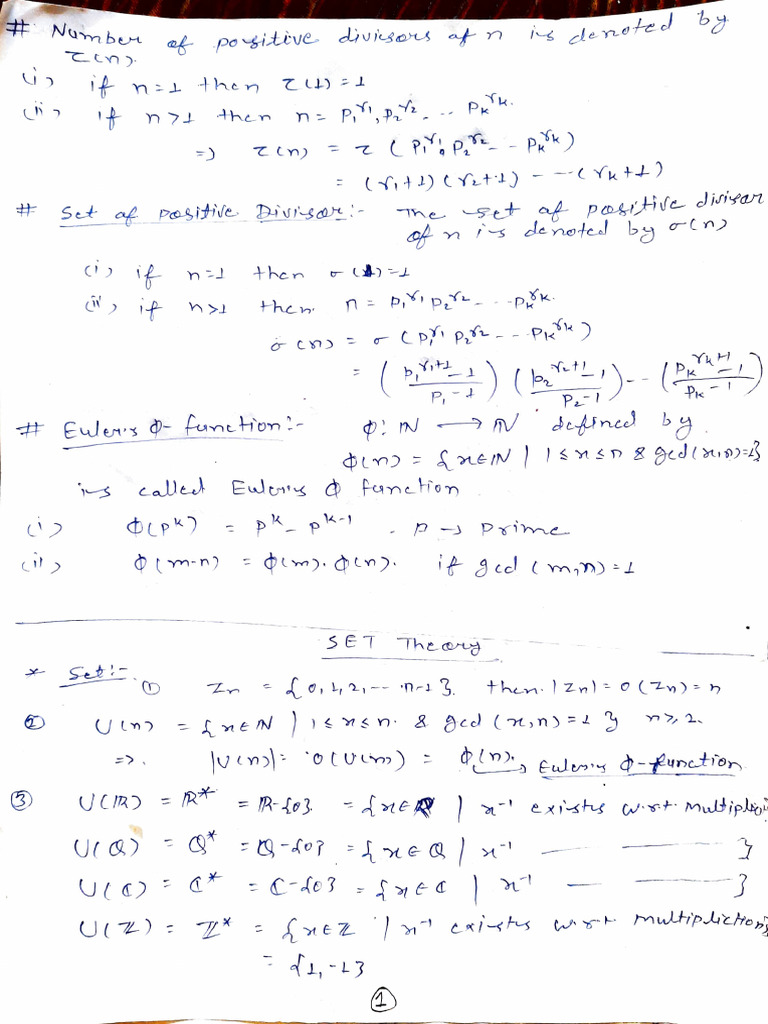 # Number of positive divisors of n is denoted by
τ(n).
(i) if n=1 then τ(1)=1
(ii) if n>1 then n= p₁^r₁, p₂^r₂ --- pₖ^rₖ.
=) τ(n) = τ ( p₁^r₁. p₂^r₂ -- pₖ^rₖ)
= (r₁+1) (r₂+1) --- (rₖ+1)
# Set of positive Divisor:- The set of positive divisor
of n is denoted by σ(n)
(i) if n=1 then σ(1)=1
(ii) if n>1 then. n = p₁^r₁ p₂^r₂ --- pₖ^rₖ.
σ(n) = σ ( p₁^r₁ p₂^r₂ --- pₖ^rₖ)
= ( (p₁^(r₁+1) - 1)/(p₁-1) ) ( (p₂^(r₂+1) - 1)/(p₂-1) ) -- ( (pₖ^(rₖ+1) - 1)/(pₖ-1) )
# Euler's ϕ- function:- ϕ: ℕ → ℕ defined by
ϕ(n) = {x∈ℕ | 1≤x≤n & gcd(x,n)=1}
is called Euler's ϕ function
(i) ϕ(p^k) = p^k - p^(k-1) . p → prime
(ii) ϕ(m·n) = ϕ(m). ϕ(n). if gcd (m,n)=1
SET Theory
* Set:- ① Zn = {0,1,2,--- n-1}. then. |Zn| = o(Zn) = n
② U(n) = {x∈ℕ | 1≤x≤n. & gcd (x,n)=1 } n≥2.
=>. |U(n)| = o(U(n)) = ϕ(n). → Euler's ϕ-function
③ U(ℝ) = ℝ* = ℝ-{0} = {x∈ℝ | x⁻¹ exists w.r.t multiplic
U(ℚ) = ℚ* = ℚ-{0} = {x∈ℚ | x⁻¹ —— ——— }
U(ℂ) = ℂ* = ℂ-{0} = {x∈ℂ | x⁻¹ —— ——— }
U(ℤ) = ℤ* = {x∈ℤ | x⁻¹ exists w.r.t multiplictions}
= {1,-1}
①